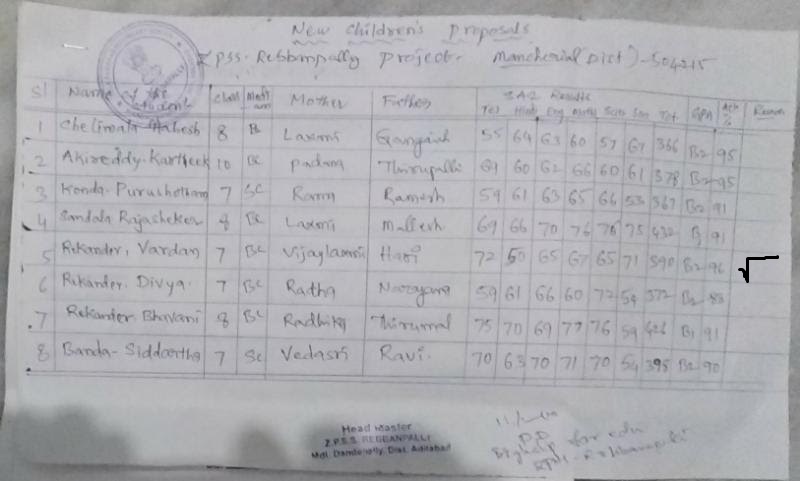 New Children's Proposals
ZPSS. Rebbanpally Project. Mancherial Dist)-504215
Sl Name of the Student Class Mother Father SA2 Results Tel Hindi Eng Maths Scie Soc Tot GPA %
1 Chelimala Mahesh 8 BC Laxmi Gangaiah 55 64 63 60 57 67 366 B2 95
2 Akireddy. Kartheek 10 BC Padama Thirupathi 69 60 62 66 60 61 378 B2 95
3 Konda. Purushotham 7 SC Rama Ramesh 59 61 63 65 66 53 367 B2 91
4 Sandala Rajasheker 8 BC Laxmi Mallesh 69 66 70 76 76 75 432 B1 91
5 Rekander, Vardan 7 BC Vijaylaxmi Hari 72 50 65 67 65 71 390 B2 96
6 Rekander. Divya. 7 BC Radha Narayana 59 61 66 60 72 54 372 B2 88
7 Rekander. Bhavani 8 BC Radhika Thirumal 75 70 69 77 76 59 426 B1 91
8 Banda. Siddartha 7 SC Vedasri Ravi. 70 63 70 71 70 54 395 B2 90
Head Master
Z.P.S.S. REBBANPALLI
Mdl. Dandepally, Dist. Adilabad
P.D
Bighelp for edu